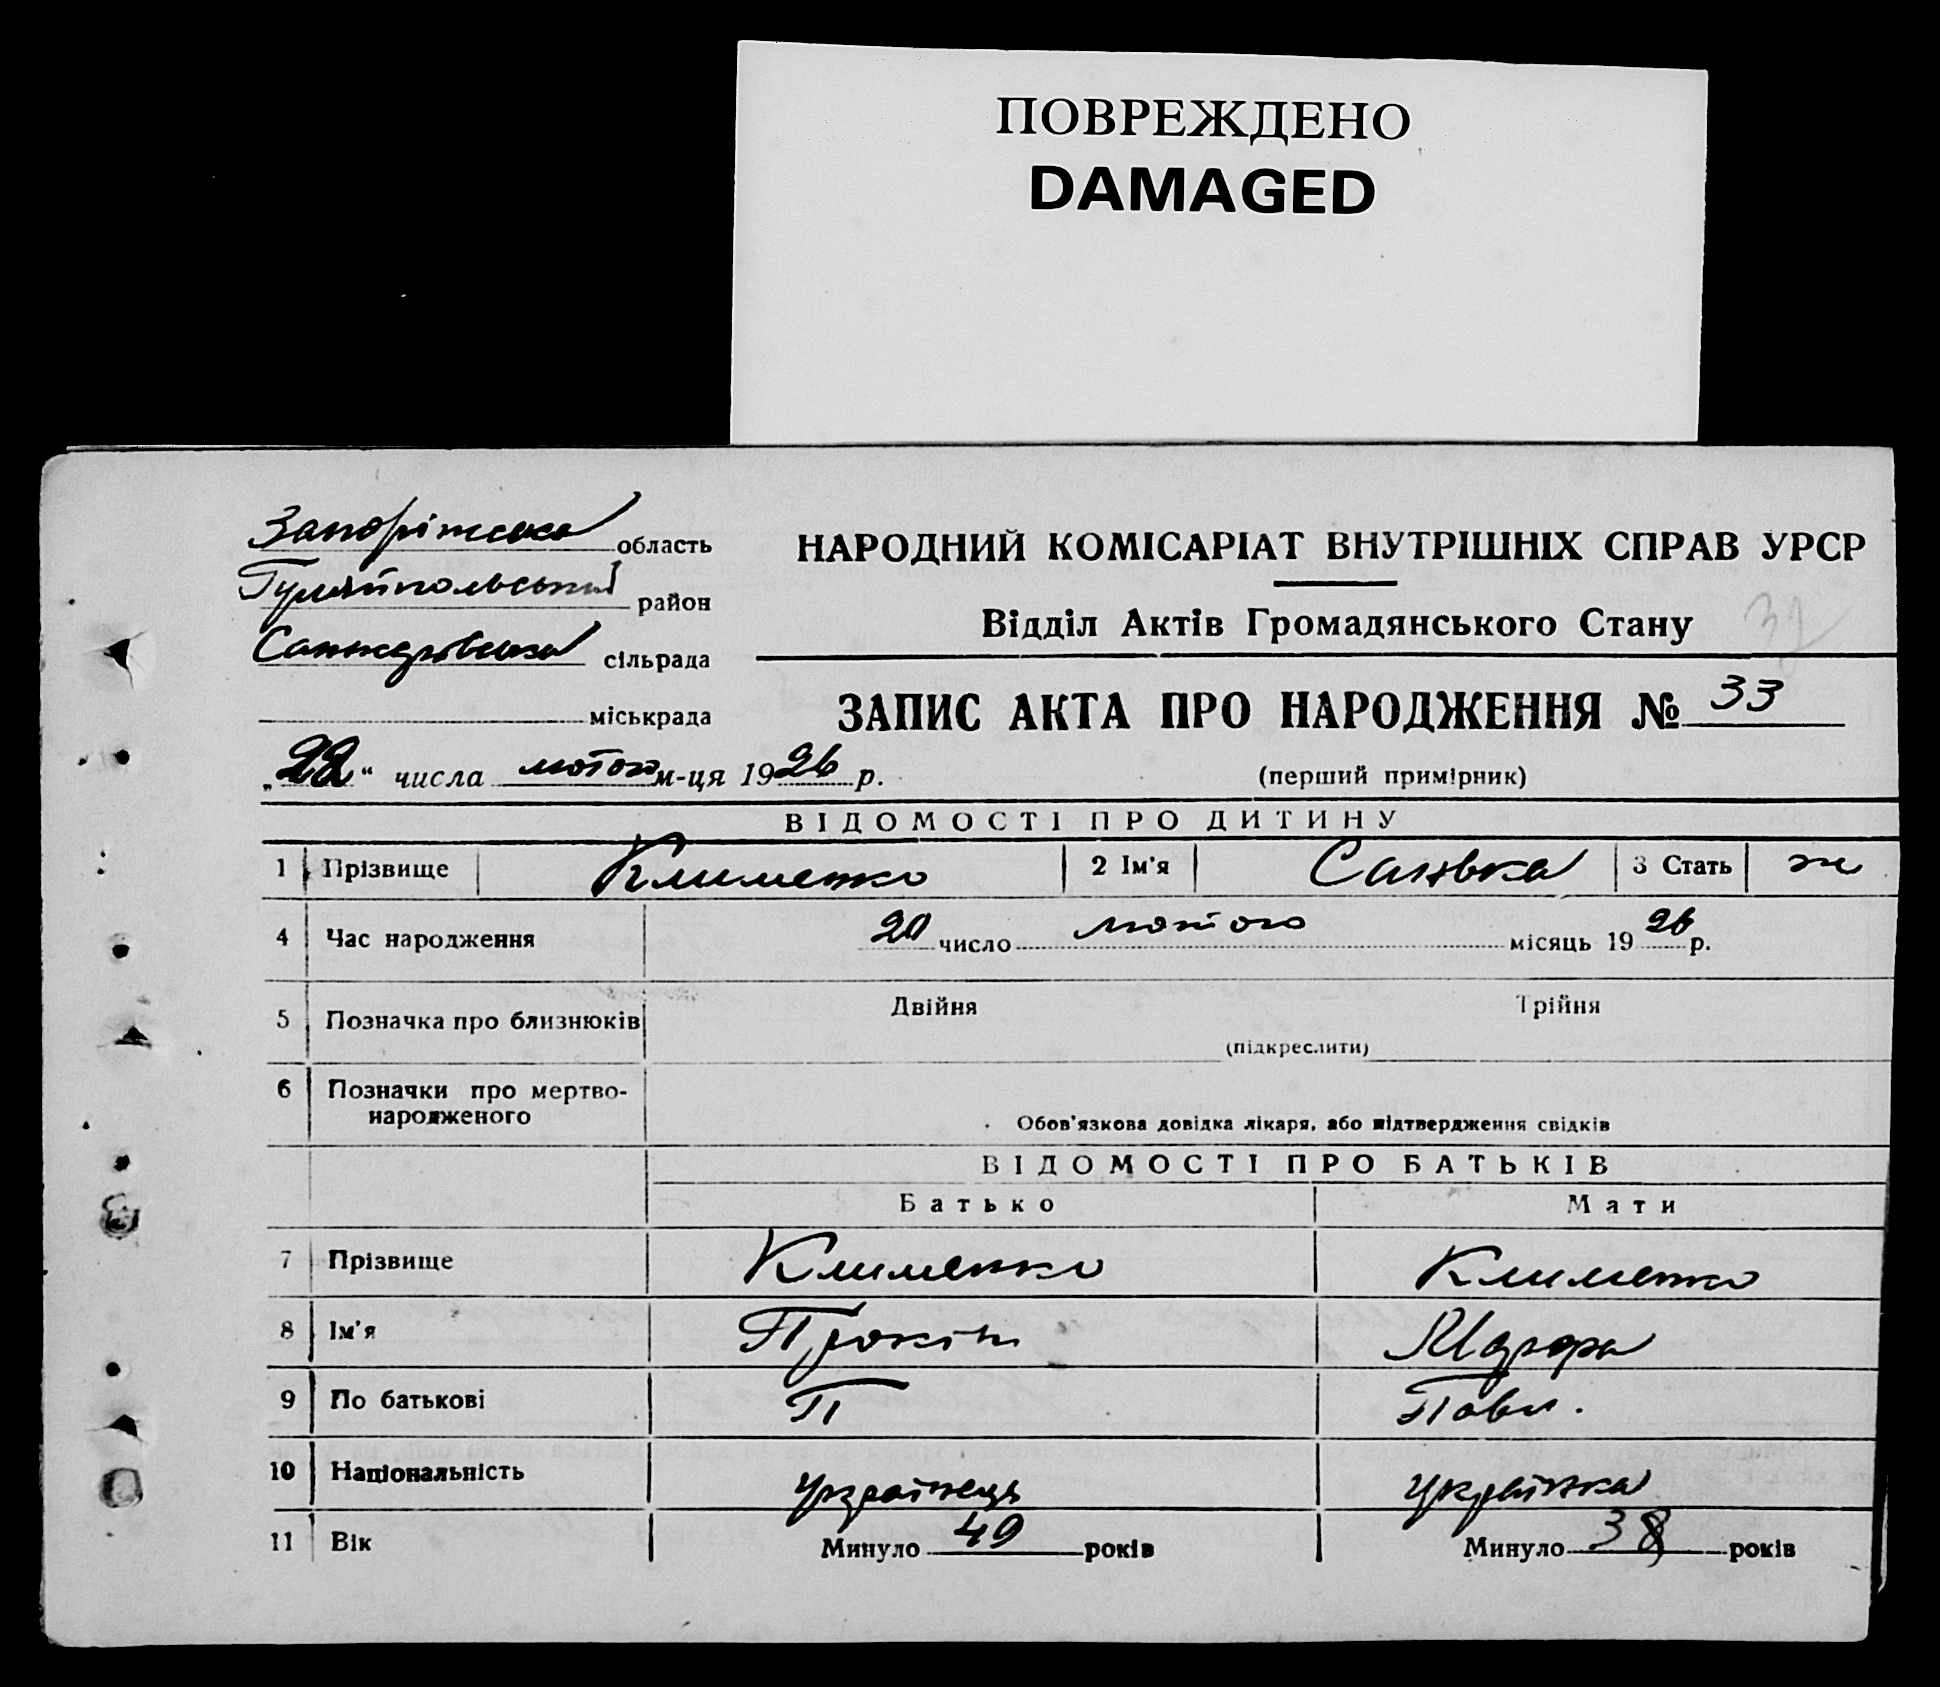 ПОВРЕЖДЕНО
DAMAGED
Запоріжська область
Гуляйпольський район
сільрада
міськрада
НАРОДНИЙ КОМІСАРІАТ ВНУТРІШНІХ СПРАВ УРСР
Відділ Актів Громадянського Стану
ЗАПИС АКТА ПРО НАРОДЖЕННЯ № 33
„22“ числа лютого м-ця 1926 р.
(перший примірник)
ВІДОМОСТІ ПРО ДИТИНУ
1 Прізвище Клименко 2 Ім'я Санька 3 Стать ж
4 Час народження 20 число лютого місяць 1926 р.
5 Позначка про близнюків Двійня Трійня
(підкреслити)
6 Позначки про мертво-
народженого
Обов'язкова довідка лікаря, або підтвердження свідків
ВІДОМОСТІ ПРО БАТЬКІВ
Батько Мати
7 Прізвище Клименко Клименко
8 Ім'я Прокіп Марфа
9 По батькові П Павл.
10 Національність українець українка
11 Вік Минуло 49 років Минуло 38 років